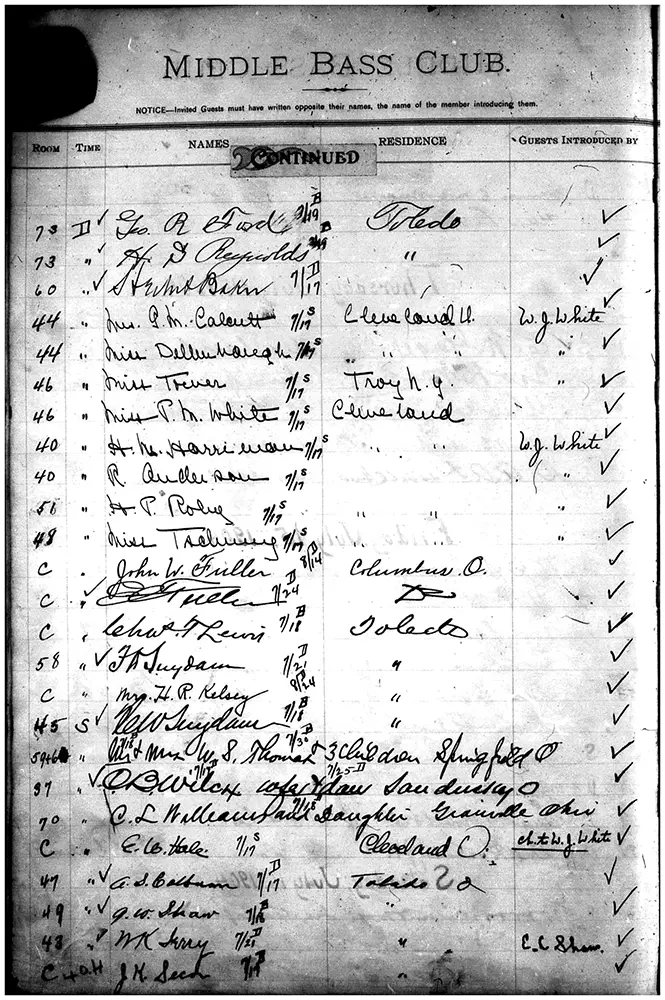 MIDDLE BASS CLUB.
NOTICE—Invited Guests must have written opposite their names, the name of the member introducing them.
ROOM TIME NAMES RESIDENCE GUESTS INTRODUCED BY
CONTINUED
73 D ✓ Geo. R. Ford 7/19 B Toledo ✓
73 " H. D. Reynolds 7/19 B " ✓
60 " ✓ Baker 7/17 D ✓
44 " Mrs. P. M. Calcutt 7/17 S Cleveland O. W. J. White ✓
44 " Miss Dellenbaugh 7/17 S " " " ✓
46 " Miss Trever 7/17 S Troy N.Y. " ✓
46 " Miss P. M. White 7/17 S Cleveland ✓
40 " H. M. Harriman 7/17 S " " W. J. White ✓
40 " R. Anderson 7/17 S " ✓
51 " H. P. 7/17 S " " " ✓
48 " Miss 7/17 S " " " ✓
C " John W. Fuller 8/14 D Columbus. O. ✓
C " ✓ Fuller 7/24 D ✓
C " Chas. T Lewis 7/18 B Toledo ✓
58 " ✓ Suydam 7/21 D " ✓
C " Mrs. H. R. Kelsey 8/24 " ✓
45 S ✓ Suydam 7/18 B " ✓
& Mrs W. S. Thomas & 3 children Springfield O ✓
37 " ✓ O B Wilcox wife & 7/25 D Sandusky O ✓
70 " C. L. Williams and Daughter Granville Ohio ✓
C " 7/17 S Cleveland O. W. J. White ✓
47 " ✓ 7/17 D Toledo O ✓
49 " ✓ G. W. Shaw " ✓
43 " W K Terry 7/21 D " E. C. Shaw. ✓
C J. K. Secor " ✓